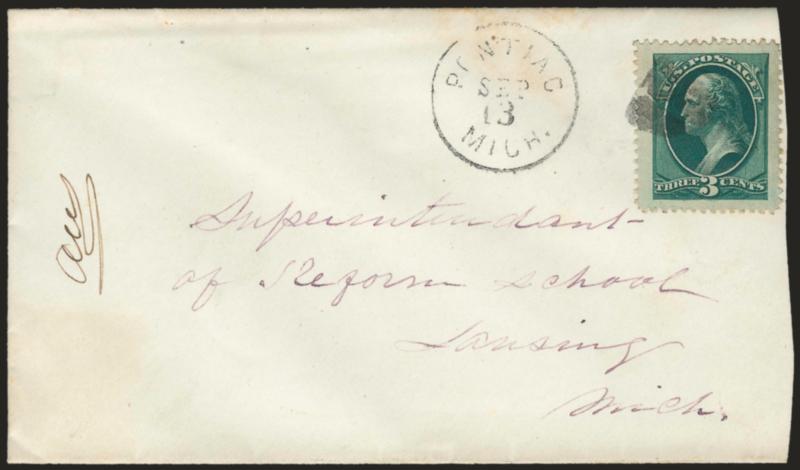 PONTIAC
SEP
13
MICH.
U.S. POSTAGE
THREE 3 CENTS
Superintendant
of Reform School
Lansing
Mich.